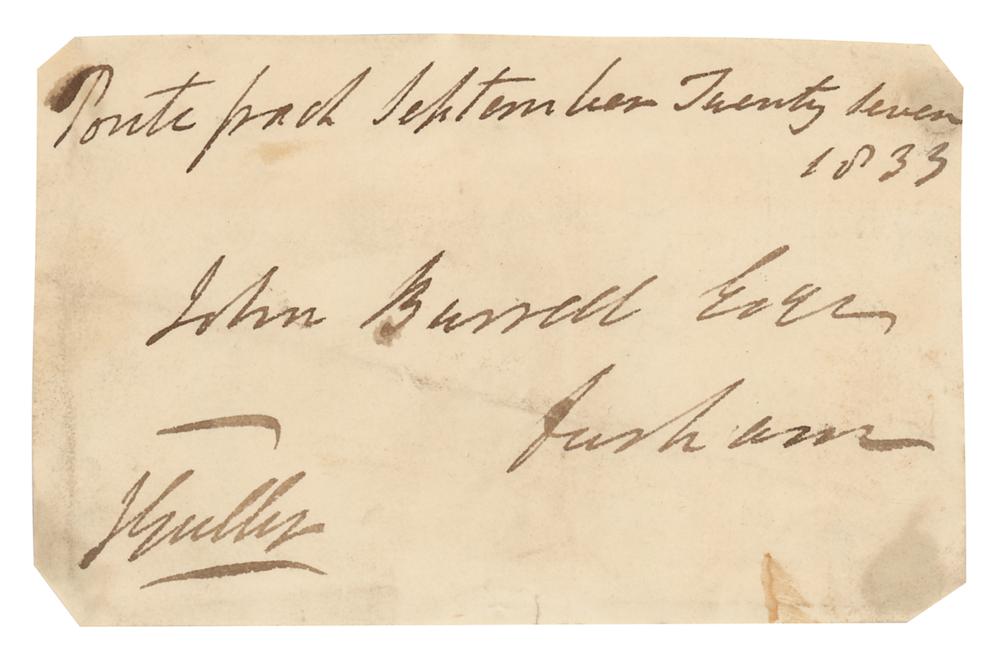 Ponte fract September Twenty Seven
1833
John Burrell Esqr
Durham
JGully